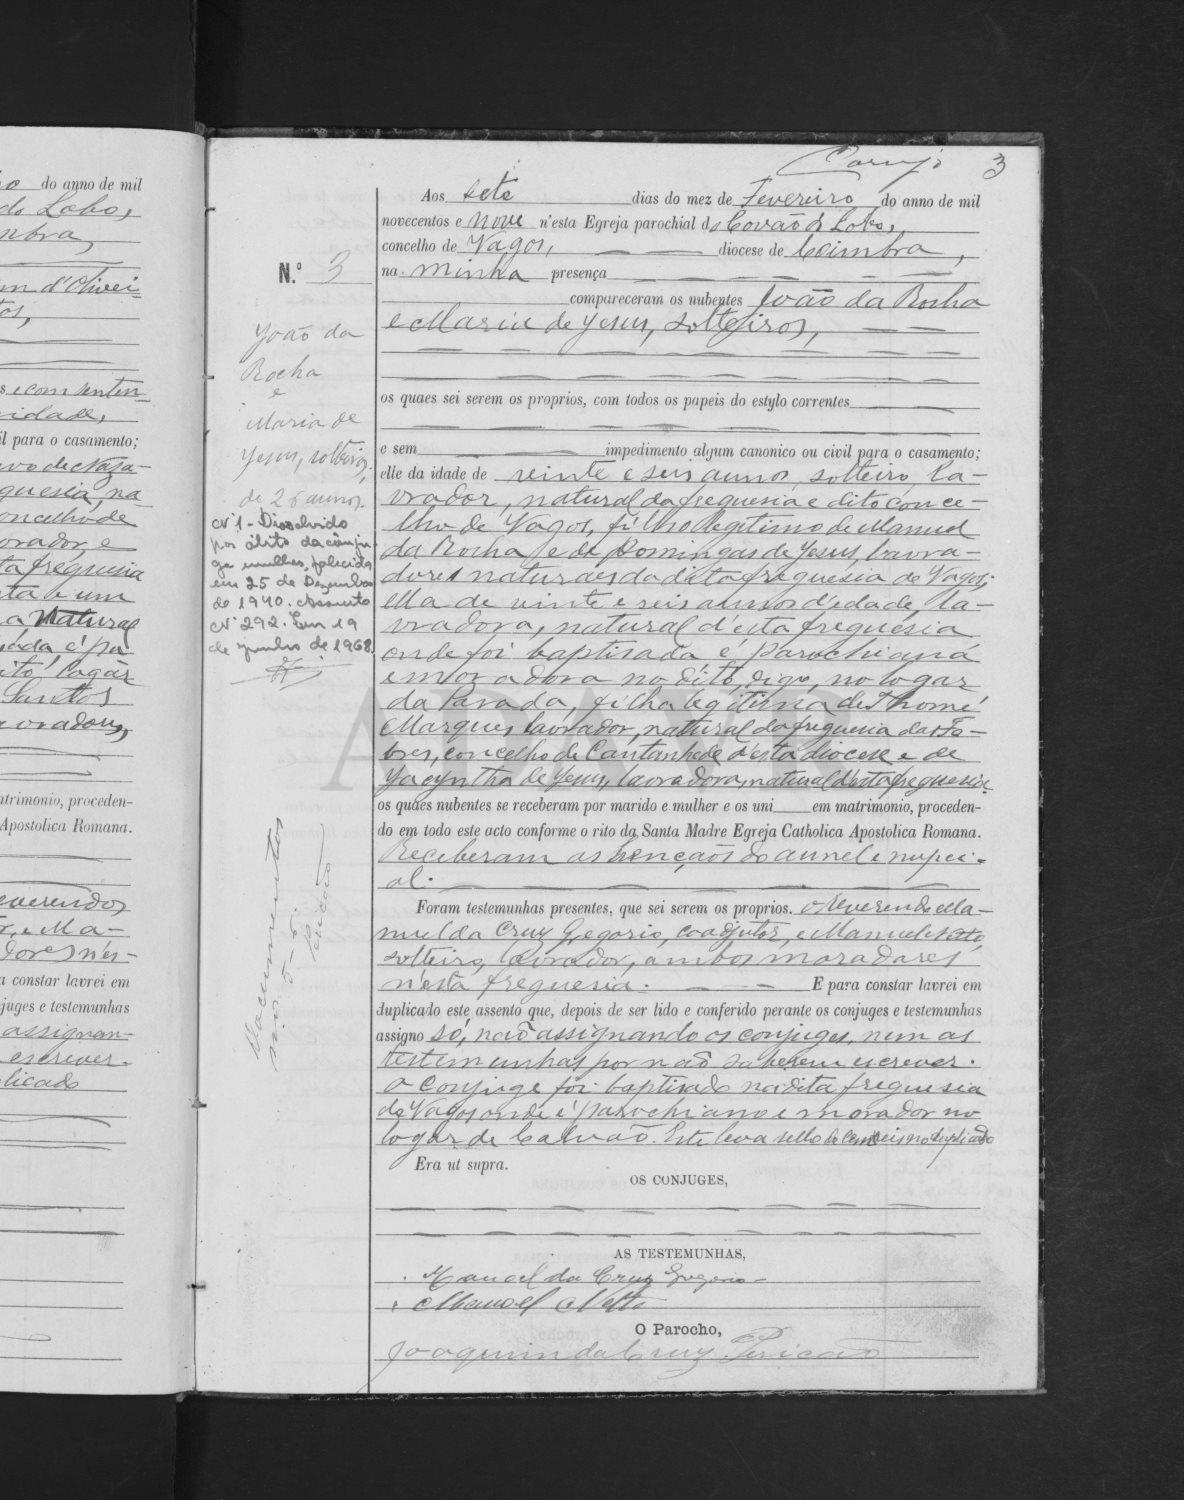 3
Aos sete dias do mez de Fevereiro do anno de mil
novecentos e nove n'esta Egreja parochial do Covão do Lobo,
concelho de Vagos, diocese de Coimbra,
na minha presença
compareceram os nubentes João da Rocha
e Maria de Jesus, solteiros,
os quaes sei serem os proprios, com todos os papeis do estylo correntes
e sem impedimento algum canonico ou civil para o casamento;
elle da idade de vinte e seis annos, solteiro, la-
vrador, natural da freguesia e dito conce-
lho de Vagos, filho legitimo de Manuel
da Rocha e de Domingas de Jesus, lavra-
dores naturaes da dita freguesia de Vagos;
ella de vinte e seis annos d'edade, la-
vradora, natural d'esta freguesia
onde foi baptisada é parochiana
e moradora no dito, digo, no logar
da Parada, filha legitima de Thomé
Marques lavrador, natural da freguesia das Fe-
bres, concelho de Cantanhede d'esta diocese e de
Jacyntha de Jesus, lavradora, natural d'esta freguesia
os quaes nubentes se receberam por marido e mulher e os uni em matrimonio, proceden-
do em todo este acto conforme o rito da Santa Madre Egreja Catholica Apostolica Romana.
Receberam as bençaõs do annel e nupci-
al.
Foram testemunhas presentes, que sei serem os proprios. o Reverendo Ma-
nuel da Cruz Gregorio, coadjutor, e Manuel Netto,
solteiro, lavrador, ambos moradores
n'esta freguesia. E para constar lavrei em
duplicado este assento que, depois de ser lido e conferido perante os conjuges e testemunhas
assigno só, não assignando os conjuges, nem as
testemunhas por naõ saberem escrever.
O conjuge foi baptisado na dita freguesia
de Vagos onde é parochiano e morador no
logar de Calvaõ. Este leva sello de cem reis no duplicado
Era ut supra.
OS CONJUGES,
AS TESTEMUNHAS,
Manoel da Cruz Gregorio
Manoel Netto
O Parocho,
Joaquim da Cruz Pericão
N.º 3
João da
Rocha
e
Maria de
Jesus, solteiros,
de 26 annos.
Nº 1 - Dissolvido
por óbito da cônju-
ge mulher, falecida
em 25 de Dezembro
de 1940. Assento
Nº 292. Em 19
de Junho de 1968.
Documentos
nº 5-5.
Pericão
do anno de mil
do Lobo,
il para o casamento;
atrimonio, proceden-
Apostolica Romana.
a constar lavrei em
juges e testemunhas